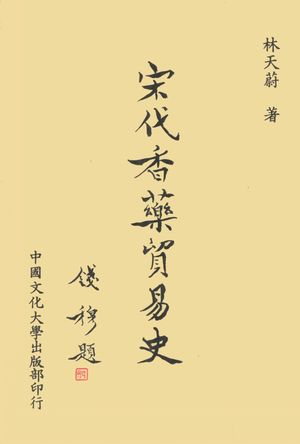 林天蔚 著
宋代香藥貿易史
錢穆題
中國文化大學出版部印行